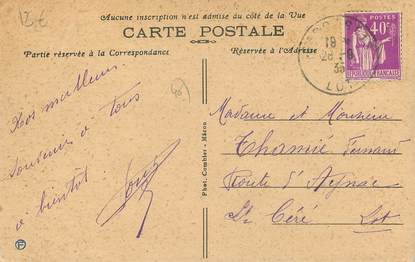 13 €
Aucune inscription n'est admise au côté de la Vue
CARTE POSTALE
Partie réservée à la Correspondance
Réservée à l'Adresse
POSTES
40c
REPUBLIQUE FRANÇAISE
LOT
Nos meilleurs
souvenirs à tous
à bientôt
Phot. Combier - Mâcon
Madame et Monsieur
Thamié Fernand
Route d'Aynac
St Céré Lot